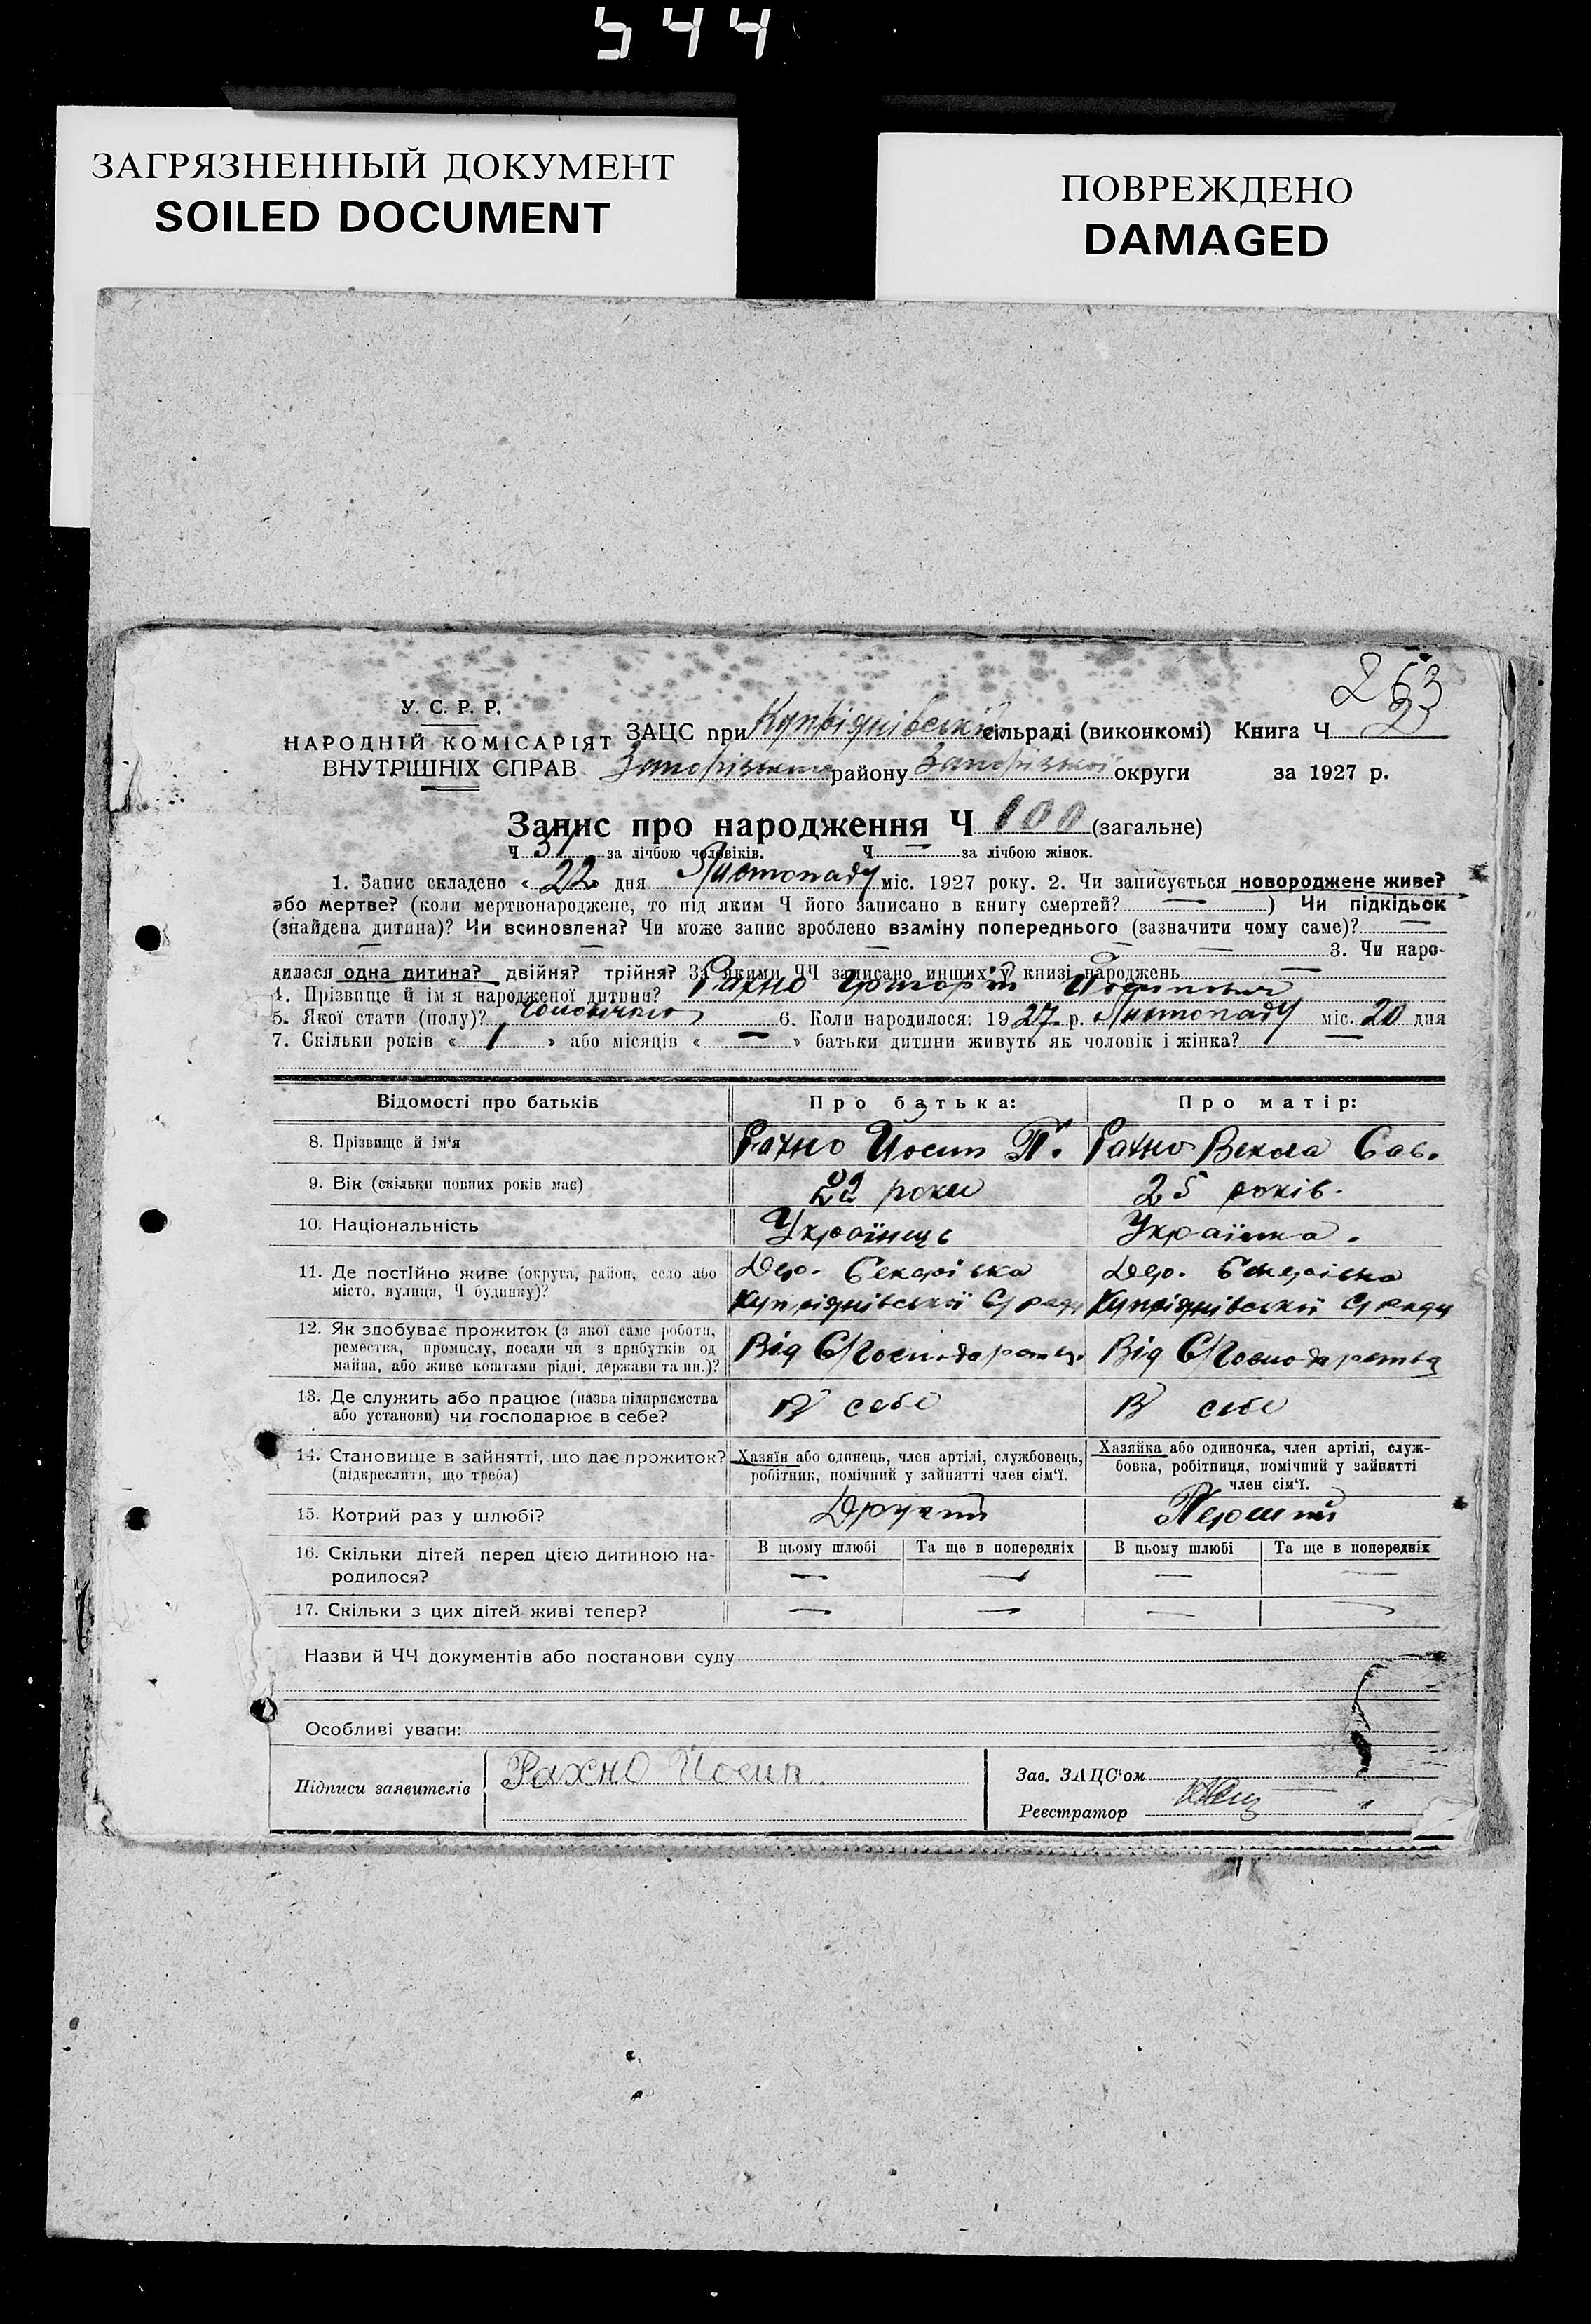 544
ЗАГРЯЗНЕННЫЙ ДОКУМЕНТ
SOILED DOCUMENT
ПОВРЕЖДЕНО
DAMAGED
263
У. С. Р. Р.
НАРОДНІЙ КОМІСАРІЯТ
ВНУТРІШНІХ СПРАВ
ЗАЦС при Купріянівській сільраді (виконкомі) Книга Ч 2
Запорізького району Запорізької округи за 1927 р.
Запис про народження Ч 100 (загальне)
Ч 51 за лічбою чоловіків. Ч — за лічбою жінок.
1. Запис складено « 22 » дня Листопаду міс. 1927 року. 2. Чи записується новороджене живе?
або мертве? (коли мертвонароджене, то під яким Ч його записано в книгу смертей? — ) Чи підкідьок
(знайдена дитина)? Чи всиновлена? Чи може запис зроблено взаміну попереднього (зазначити чому саме)? —
— — — — 3. Чи наро-
дилася одна дитина? двійня? трійня? За якими ЧЧ записано инших у книзі народжень —
4. Прізвище й ім'я народженої дитини? Рахно Григорій Йосипович
5. Якої стати (полу)? Чоловічого 6. Коли народилося: 1927 р. Листопаду міс. 20 дня
7. Скільки років « 1 » або місяців « — » батьки дитини живуть як чоловік і жінка? —
Відомості про батьків Про батька: Про матір:
8. Прізвище й ім'я Рахно Йосип П. Рахно Векла Сав.
9. Вік (скільки повних років має) 22 роки 25 років.
10. Національність Українець Українка.
11. Де постійно живе (округа, район, село або
місто, вулиця, Ч будинку)?
Дер.
Купріянівської С/ради
Дер.
Купріянівської С/ради
12. Як здобуває прожиток (з якої саме роботи,
ремества, промислу, посади чи з прибутків од
майна, або живе коштами рідні, держави та ин.)?
Від С/Господарства Від С/Господарства
13. Де служить або працює (назва підприємства
або установи) чи господарює в себе?
В себе В себе
14. Становище в зайнятті, що дає прожиток?
(підкреслити, що треба)
Хазяїн або одинець, член артілі, службовець,
робітник, помічний у зайнятті член сім'ї.
Хазяйка або одиночка, член артілі, служ-
бовка, робітниця, помічний у зайнятті
член сім'ї.
15. Котрий раз у шлюбі? Другий Перший
16. Скільки дітей перед цією дитиною на-
родилося?
В цьому шлюбі Та ще в попередніх В цьому шлюбі Та ще в попередніх
— — — —
17. Скільки з цих дітей живі тепер? — — — —
Назви й ЧЧ документів або постанови суду
Особливі уваги:
Підписи заявителів Рахно Йосип
Зав. ЗАЦС'ом
Реєстратор